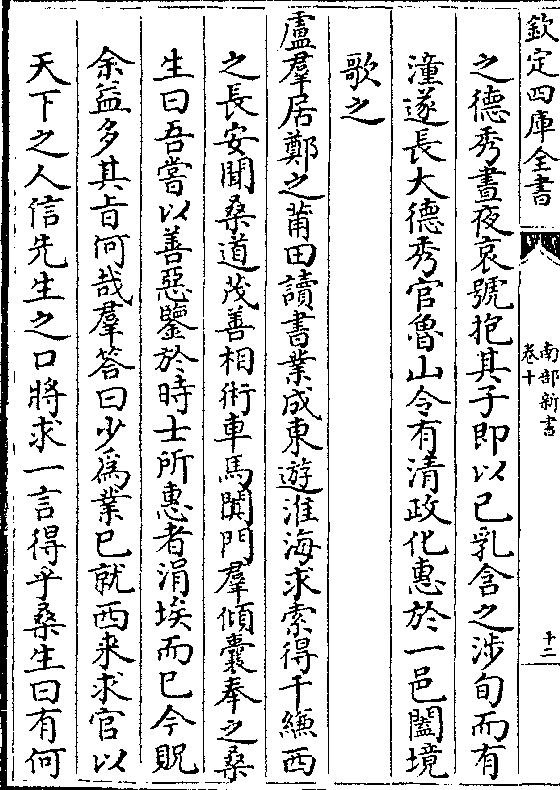 欽定四庫全書
南部新書
卷十
十二
之德秀晝夜哀號抱其子即以已乳含之涉旬而有
潼遂長大德秀官魯山令有清政化惠於一邑闔境
歌之
盧羣居鄭之莆田讀書業成東遊淮海求索得千縑西
之長安聞桑道茂善相術車馬闐門羣傾囊奉之桑
生曰吾嘗以善惡鑒於時士所惠者涓埃而已今貺
余益多其㫖何哉羣答曰少為業已就西來求官以
天下之人信先生之口將求一言得乎桑生曰有何